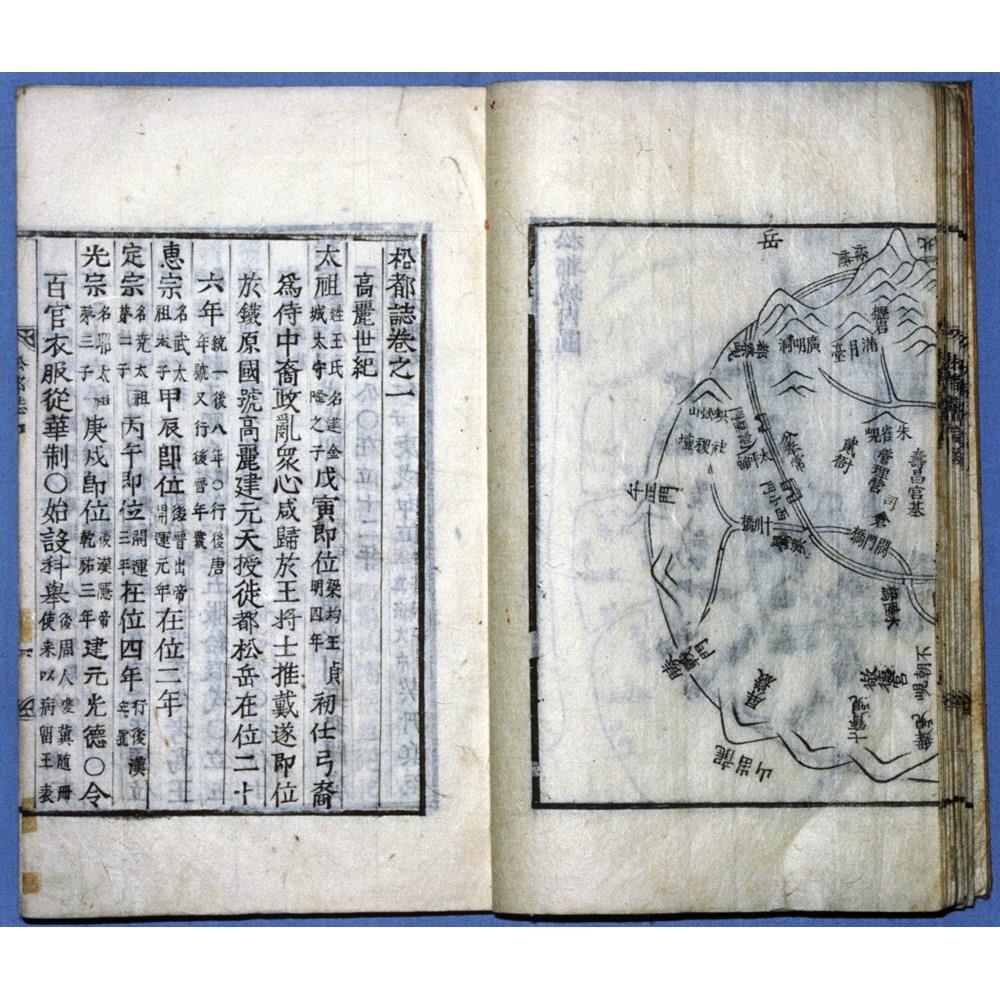 岳
北
壽昌宮基
滿月臺
廣明洞
社稷壇
午正門
不朝峴
龍岫山
松都誌卷之一
高麗世紀
太祖姓王氏名建金城太守隆之子戊寅即位梁均王貞明四年初仕弓裔
爲侍中裔政亂衆心咸歸於王將士推戴遂即位
於鐵原國號高麗建元天授徙都松岳在位二十
六年統一後八年〇行後唐年號又行後晋年號
惠宗名武太祖長子甲辰即位後晉出帝開運元年在位二年
定宗名堯太祖第二子丙午即位開運三年在位四年行後漢年號
光宗名昭太祖第三子庚戌即位後漢隱帝乾祐三年建元光德〇令
百官衣服從華制〇始設科舉後周人雙冀隨冊使來以病留王表